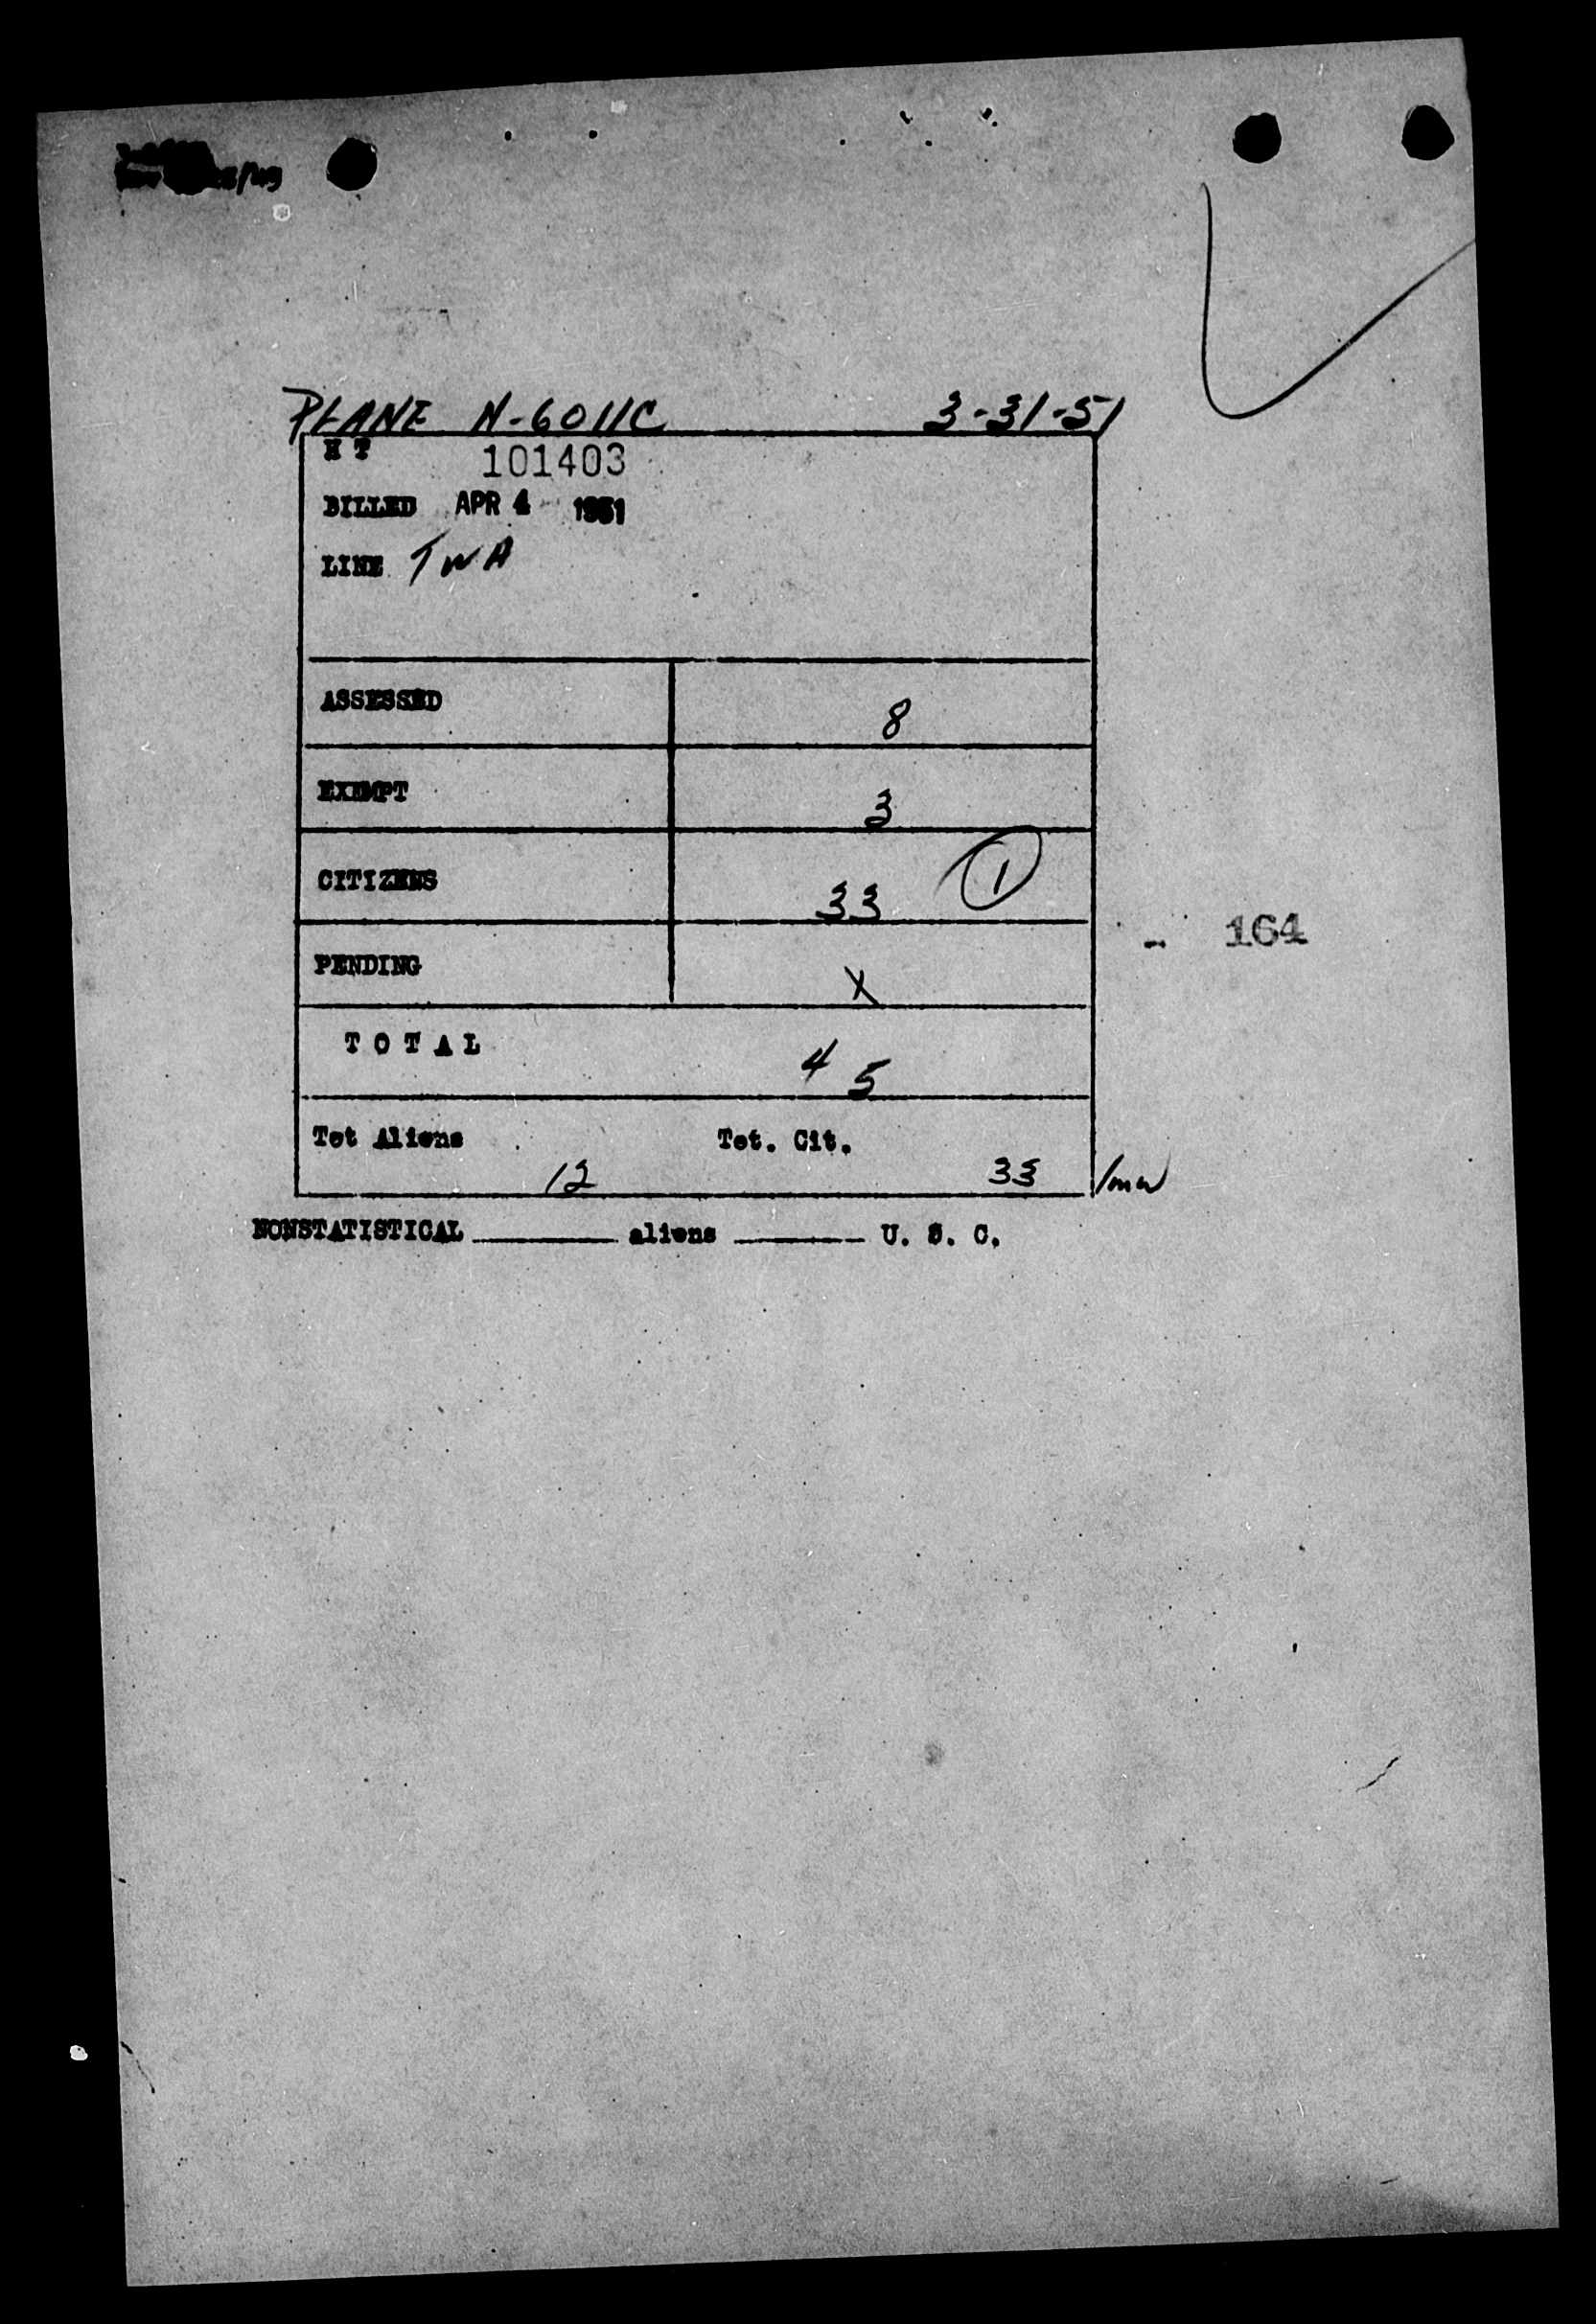 PLANE N-6011C 3-31-51
H T 101403
BILLED APR 4 1951
LINE TWA
ASSESSED 8
EXEMPT 3
CITIZENS 33 1
PENDING X
- 164
T O T A L 45
Tot Aliens Tot. Cit.
12 33 /mw
NONSTATISTICAL ______ aliens ______ U. S. C.